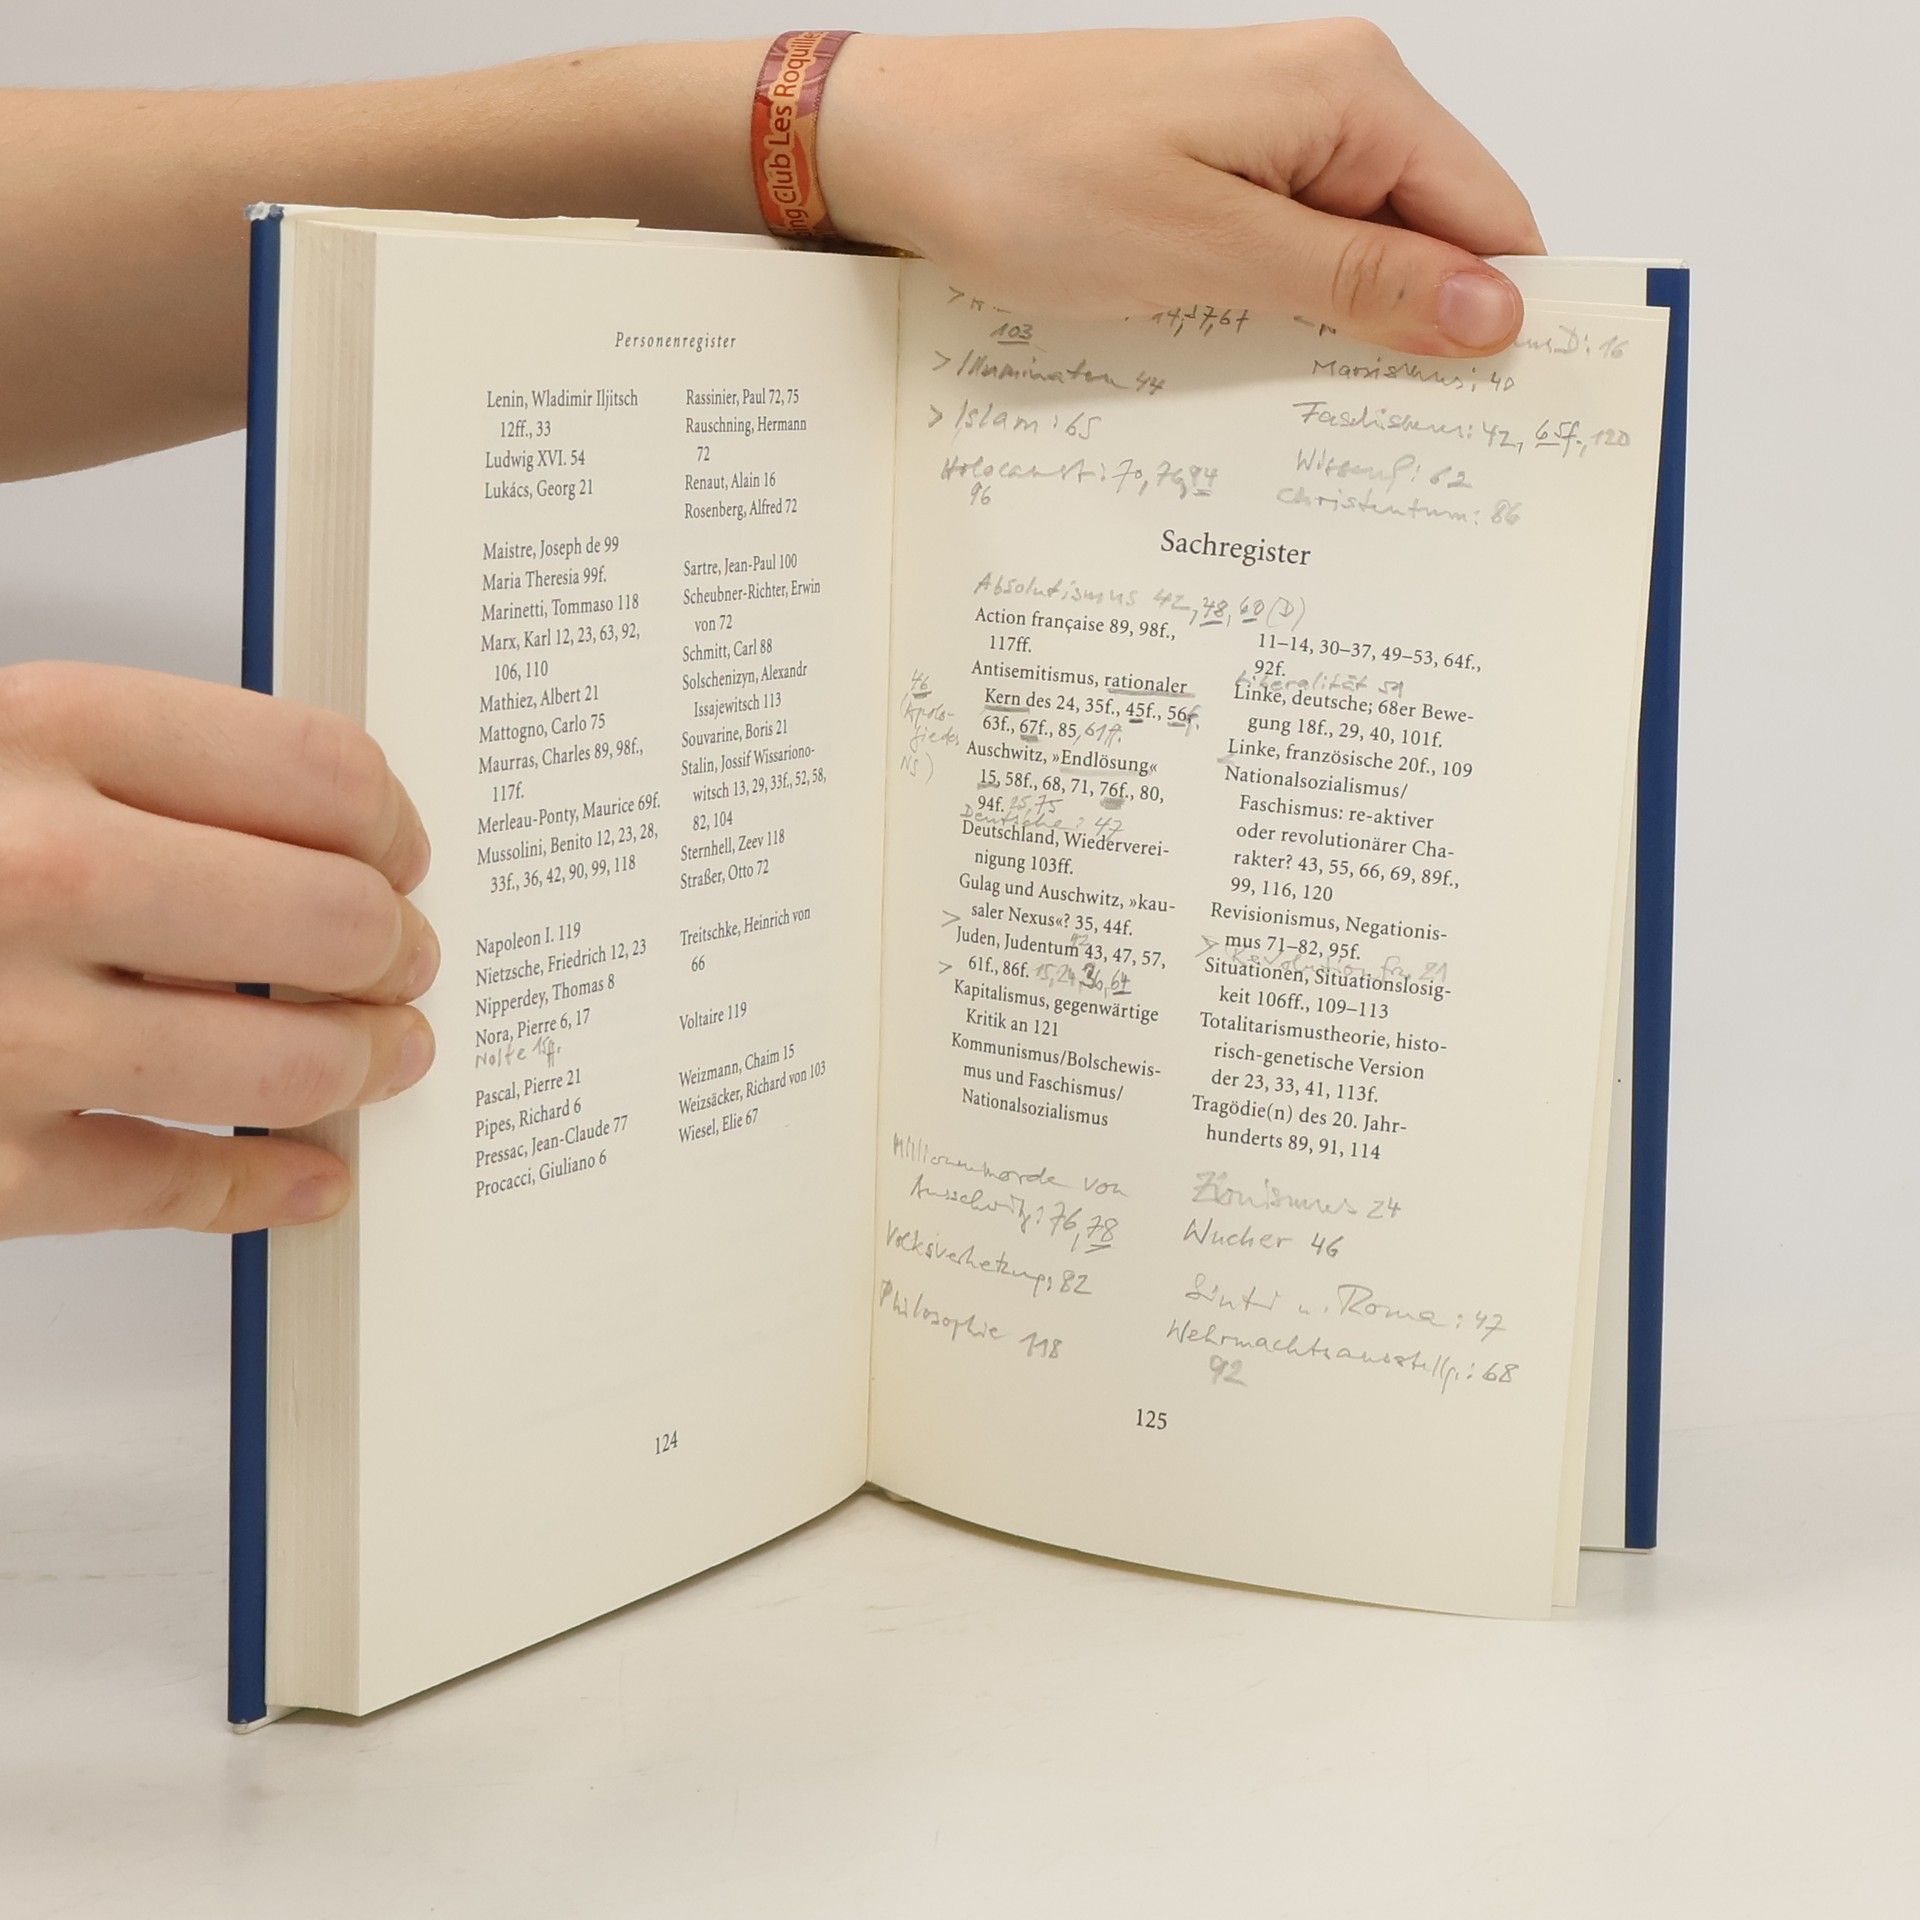 ing Club Les Roquille
Personenregister
Lenin, Wladimir Iljitsch
12ff., 33
Ludwig XVI. 54
Lukács, Georg 21
Maistre, Joseph de 99
Maria Theresia 99f.
Marinetti, Tommaso 118
Marx, Karl 12, 23, 63, 92,
106, 110
Mathiez, Albert 21
Mattogno, Carlo 75
Maurras, Charles 89, 98f.,
117f.
Merleau-Ponty, Maurice 69f.
Mussolini, Benito 12, 23, 28,
33f., 36, 42, 90, 99, 118
Napoleon I. 119
Nietzsche, Friedrich 12, 23
Nipperdey, Thomas 8
Nora, Pierre 6, 17
Nolte 15ff.
Pascal, Pierre 21
Pipes, Richard 6
Pressac, Jean-Claude 77
Procacci, Giuliano 6
Rassinier, Paul 72, 75
Rauschning, Hermann
72
Renaut, Alain 16
Rosenberg, Alfred 72
Sartre, Jean-Paul 100
Scheubner-Richter, Erwin
von 72
Schmitt, Carl 88
Solschenizyn, Alexandr
Issajewitsch 113
Souvarine, Boris 21
Stalin, Jossif Wissariono-
witsch 13, 29, 33f., 52, 58,
82, 104
Sternhell, Zeev 118
Straßer, Otto 72
Treitschke, Heinrich von
66
Voltaire 119
Weizmann, Chaim 15
Weizsäcker, Richard von 103
Wiesel, Elie 67
124
103
> Illuminaten 44
> Islam: 65
Holocaust: 70, 76, 94
96
16
Marxismus: 40
Faschismus: 42, 65f., 120
62
Christentum: 86
Sachregister
Absolutismus 42, 48, 60 (D)
Action française 89, 98f.,
117ff.
Antisemitismus, rationaler
Kern des 24, 35f., 45f., 56f.
63f., 67f., 85, 61ff.
46
(Apolo-
gie des
NS)
Auschwitz, »Endlösung«
15, 58f., 68, 71, 76f., 80,
94f. 25, 75
Deutsche: 47
Deutschland, Wiederverei-
nigung 103ff.
Gulag und Auschwitz, »kau-
saler Nexus«? 35, 44f.
Juden, Judentum 43, 47, 57,
61f., 86f. 15, 24, 36, 64
Kapitalismus, gegenwärtige
Kritik an 121
Kommunismus/Bolschewis-
mus und Faschismus/
Nationalsozialismus
11–14, 30–37, 49–53, 64f.,
92f.
Liberalität 51
Linke, deutsche; 68er Bewe-
gung 18f., 29, 40, 101f.
Linke, französische 20f., 109
Nationalsozialismus/
Faschismus: re-aktiver
oder revolutionärer Cha-
rakter? 43, 55, 66, 69, 89f.,
99, 116, 120
Revisionismus, Negationis-
mus 71–82, 95f.
> Revolution fr. 21
Situationen, Situationslosig-
keit 106ff., 109–113
Totalitarismustheorie, histo-
risch-genetische Version
der 23, 33, 41, 113f.
Tragödie(n) des 20. Jahr-
hunderts 89, 91, 114
Millionenmorde von
Ausschwitz: 76, 78
Volksverhetzung: 82
Philosophie 118
Zionismus 24
Wucher 46
Sinti u. Roma: 47
Wehrmachtsausstellg.: 68
92
125